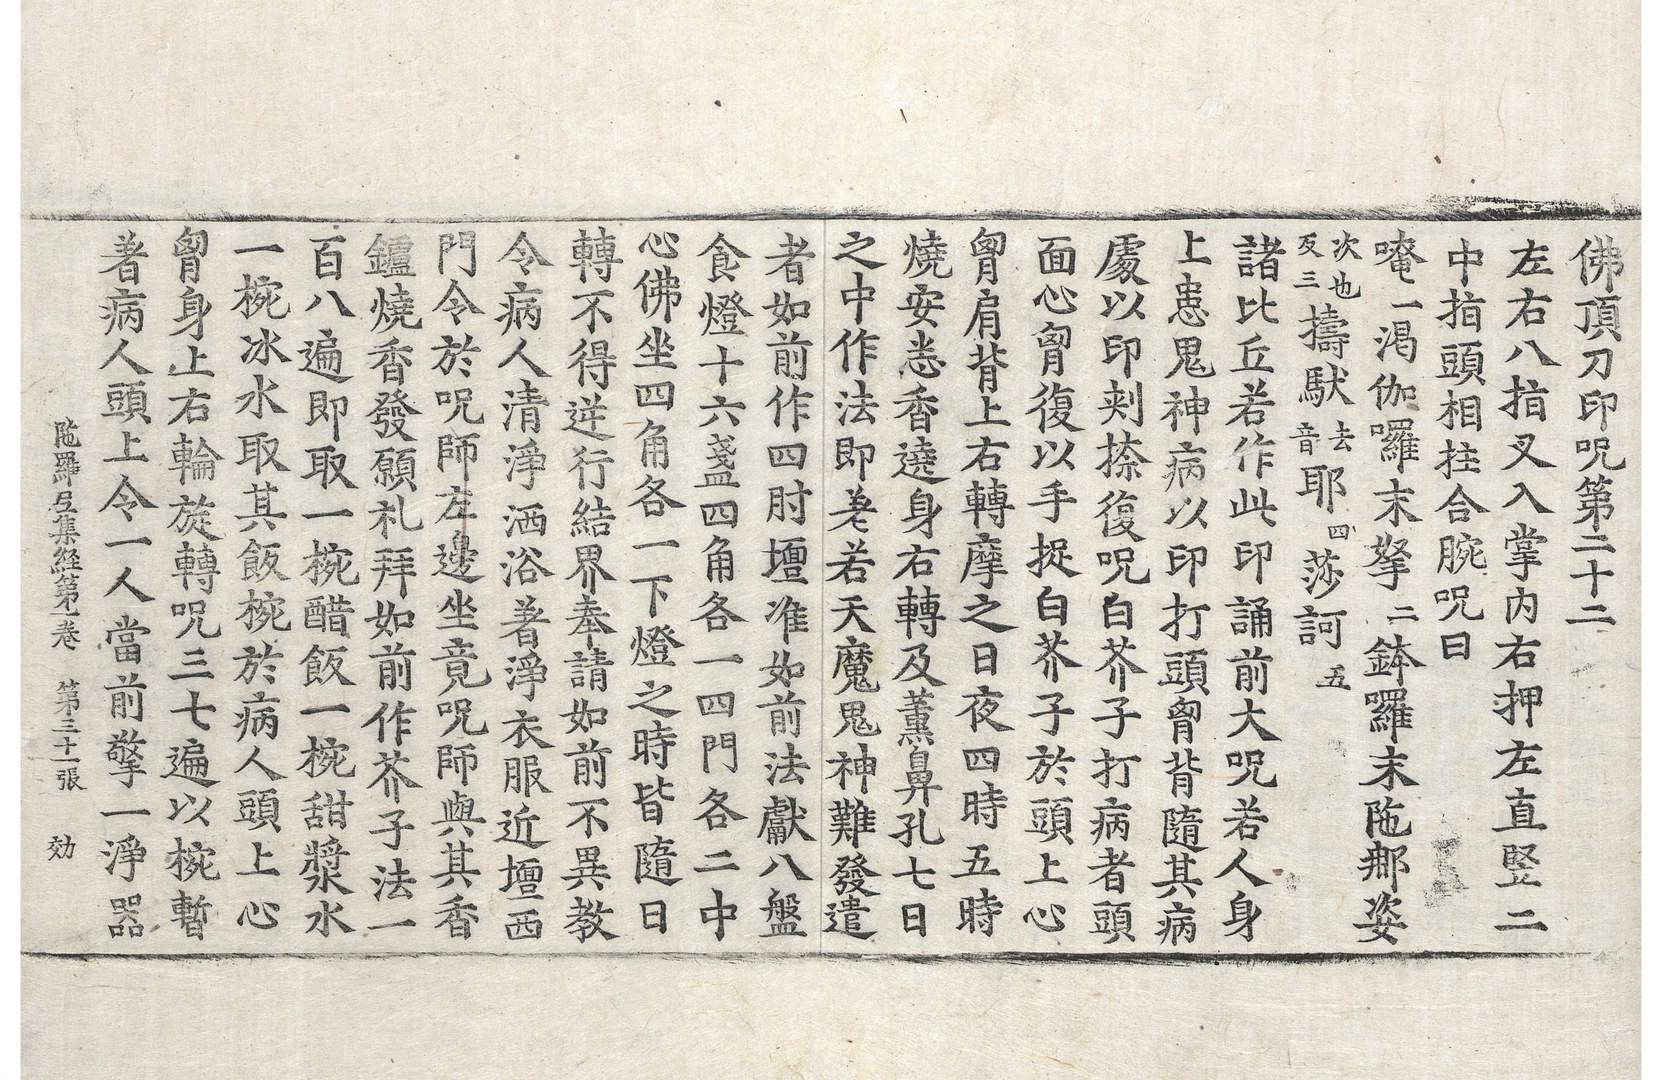 佛頂刀印呪第二十二
左右八指叉入掌內右押左直竪二
中指頭相拄合腕呪曰
唵一渴伽囉末拏二鉢囉末陁那㚣
次也反三擣馱去音耶四莎訶五
諸比丘若作此印誦前大呪若人身
上患鬼神病以印打頭胷背隨其病
處以印刾捺復呪白芥子打病者頭
面心胷復以手捉白芥子於頭上心
胷肩背上右轉摩之日夜四時五時
燒安悉香遶身右轉及薰鼻孔七日
之中作法即差若天魔鬼神難發遣
者如前作四肘壇准如前法獻八盤
食燈十六盞四角各一四門各二中
心佛坐四角各一下燈之時皆隨日
轉不得逆行結界奉請如前不異教
令病人清淨洒浴著淨衣服近壇西
門令於呪師左邊坐竟呪師與其香
鑪燒香發願礼拜如前作芥子法一
百八遍即取一椀醋飯一椀甜漿水
一椀冰水取其飯椀於病人頭上心
胷身上右輪旋轉呪三七遍以椀暫
著病人頭上令一人當前擎一淨器
陁羅尼集經第一卷　第三十一張　効